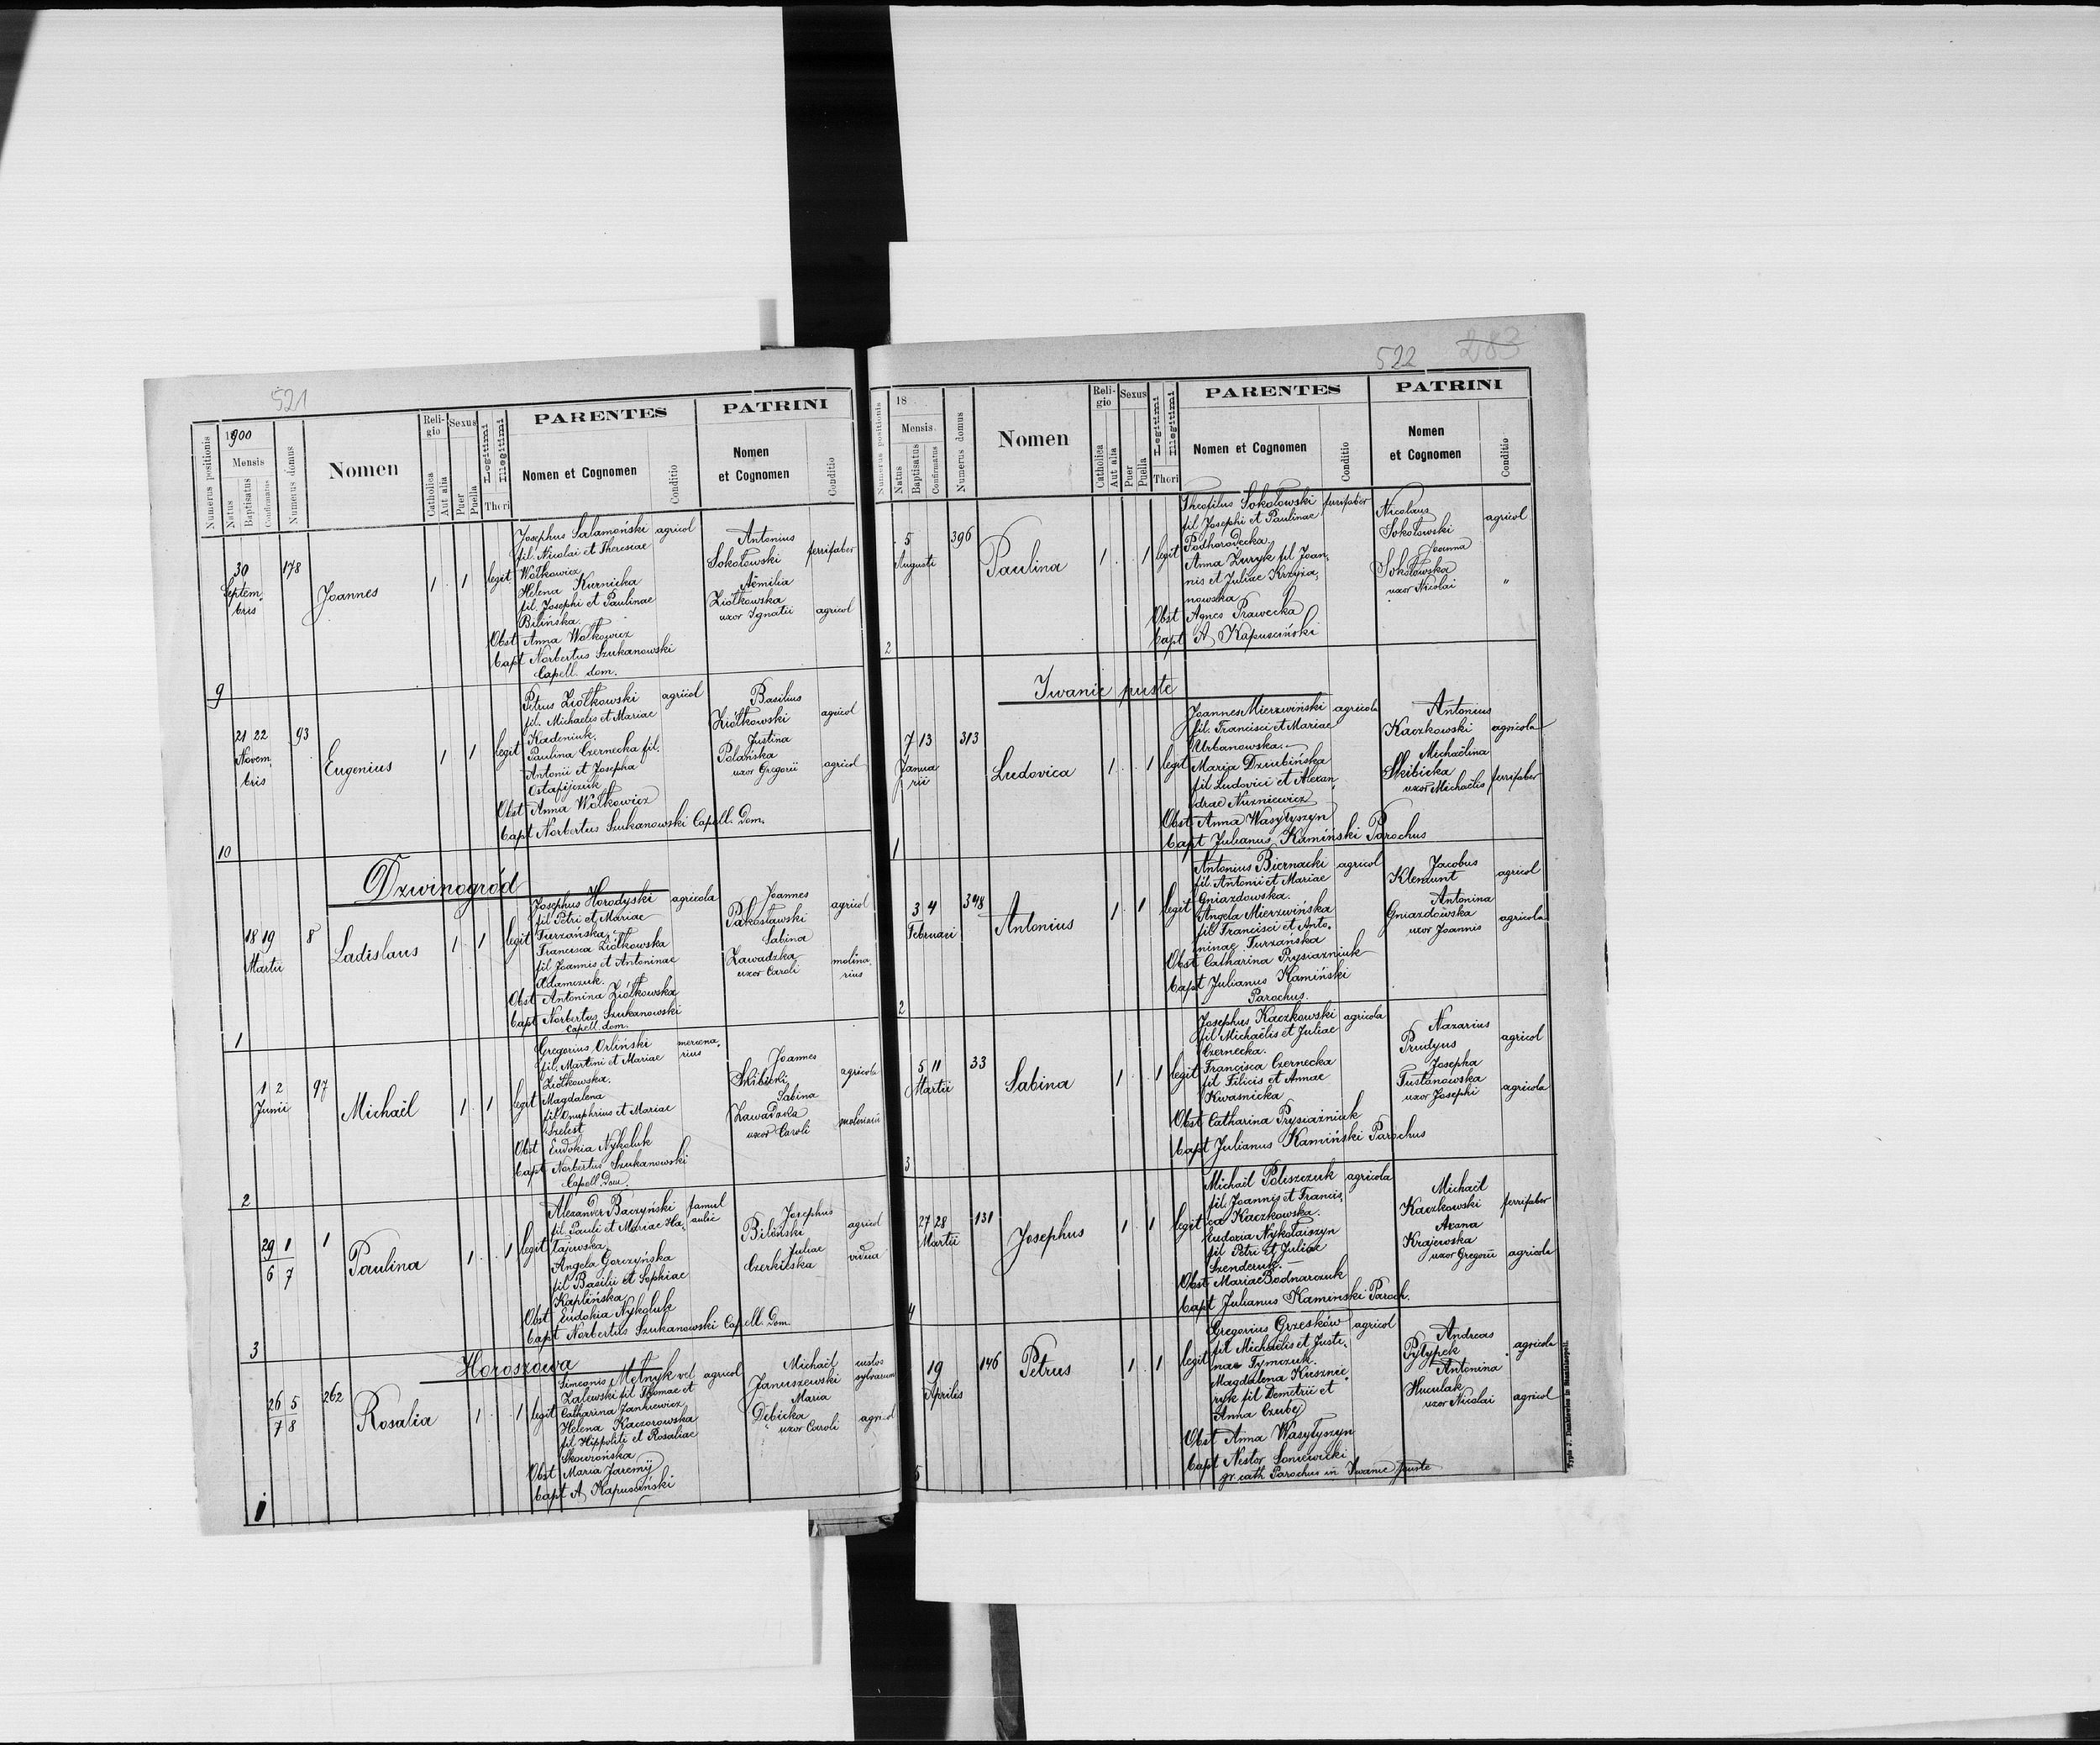 521
1900
Numerus positionis
Mensis
Natus
Baptisatus
Confirmatus
Numerus domus
Nomen
Religio
Catholica
Aut alia
Sexus
Puer
Puella
Legitimi
Illegitimi
Thori
PARENTES
Nomen et Cognomen
Conditio
PATRINI
Nomen
et Cognomen
Conditio
9
30
Septem-
bris
178
Joannes
1 1
legit
Josephus Salamoński agricol
fil. Nicolai et Theresiae
Wołkowicz
Helena Kurnicka
fil. Josephi et Paulinae
Bilińska.
Obst Anna Wołkowicz
bapt Norbertus Szukanowski
Capell. dom.
Antonius
Sokołowski ferrifaber
Aëmilia
Ziółkowska
uxor Ignatii agricol
10
21 22
Novem
bris
93
Eugenius
1 1
legit
Petrus Ziółkowski agricol
fil. Michaelis et Mariae
Kadeniuk.
Paulina Czernecka fil.
Antonii et Josepha
Ostapijczuk
Obst Anna Wołkowicz
bapt Norbertus Szukanowski Capell. Dom.
Basilius
Ziółkowski agricol
Justina
Polańska
uxor Gregorii agricol
Dzwinogród
1
18 19
Martii
8
Ladislaus
1 1
legit
Josephus Horodyski agricola
fil Petri et Mariae
Turzańska.
Francisca Ziółkowska
fil Joannis et Antoninae
Adamczuk.
Obst Antonina Ziółkowska
bapt Norbertus Szukanowski
capell. dom.
Joannes
Pakosławski agricol
Sabina
Zawadzka
uxor Caroli molina-
rius
2
1 2
Junii
97
Michaël
1 1
legit
Gregorius Orliński mercena-
rius
fil. Martini et Mariae
Ziółkowska.
Magdalena
fil Onuphrius et Mariae
Szelest
Obst Eudokia Nykoluk
bapt Norbertus Szukanowski
Capell. Dom.
Joannes
Skibicki agricola
Sabina
Zawadzka
uxor Caroli molinarii
3
29 1
6 7
1
Paulina
1 1
legit
Alexander Baczyński famul
aulic
fil. Pauli et Mariae Ha-
tajewska
Angela Gorczyńska
fil Basilii et Sophiae
Kaplińska
Obst Eudokia Nykoluk
bapt Norbertus Szukanowski Capell. Dom.
Josephus
Biliński agricol
Juliae
Czerkieska vidua
Horoszowa
1
26 5
7 8
262
Rosalia
1 1
legit
Simeonis Melnyk vel agricol
Zalewski fil Thomae et
Catharina Jankiewicz
Helena Kaczorowska
fil Hippoliti et Rosaliae
Skowrońska
Obst Maria Jaremij
bapt A Kapuściński
Michaël custos
Januszewski sylvarum
Maria
Debicka
uxor Caroli agricol
522
283
18
Numerus positionis
Mensis
Natus
Baptisatus
Confirmatus
Numerus domus
Nomen
Religio
Catholica
Aut alia
Sexus
Puer
Puella
Legitimi
Illegitimi
Thori
PARENTES
Nomen et Cognomen
Conditio
PATRINI
Nomen
et Cognomen
Conditio
2
5
Augusti
396
Paulina
1 1
legit
Theofilus Sokołowski ferrifaber
fil Josephi et Paulinae
Podhorodecka
Anna Zuryk fil Joan-
nis et Juliae Krzyża-
nowska
Obst Agnes Prawecka
bapt A Kapuściński
Nicolaus agricol
Sokołowski
Joanna
Sokołowska
uxor Nicolai "
Iwanie puste
1
7 13
Janua
rii
313
Ludovica
1 1
legit
Joannes Mierzwiński agricola
fil. Francisci et Mariae
Urbanowska.
Maria Dziubińska
fil Ludovici et Alexan
drae Nuzniewicz
Obst Anna Wasyłyszyn
bapt Julianus Kamiński Parochus
Antonius
Kaczkowski agricola
Michaëlina
Skibicka
uxor Michaëlis ferrifaber
2
3 4
Februarii
348
Antonius
1 1
legit
Antonius Biernacki agricol
fil. Antonii et Mariae
Gniazdowska.
Angela Mierzwińska
fil Francisci et Anto-
ninae Turzańska
Obst Catharina Prysiażniuk
bapt Julianus Kamiński
Parochus.
Jacobus
Klemunt agricol
Antonina
Gniazdowska agricola
uxor Joannis
3
5 11
Martii
33
Sabina
1 1
legit
Josephus Kaczkowski agricola
fil Michaëlis et Juliae
Czernecka.
Francisca Czernecka
fil Filicis et Annae
Kwasnicka
Obst Catharina Prysiażniuk
bapt Julianus Kamiński Parochus
Nazarius
Prudyus agricol
Josepha
Tustanowska
uxor Josephi agricola
4
27 28
Martii
131
Josephus
1 1
legit
Michaël Poliszczuk agricola
fil. Joannis et Francis-
ca Kaczkowska.
Eudoxia Nykołaiszyn
fil Petri et Juliae
Szenderuk.
Obst Mariae Bodnarczuk
bapt Julianus Kaminski Paroch.
Michaël
Kaczkowski ferrifaber
Axana
Krajewska
uxor Gregorii agricola
5
19
Aprilis
146
Petrus
1 1
legit
Gregorius Grzesków agricol
fil Michaëlis et Justi-
nae Tymczuk.
Magdalena Kusznie-
ryk fil Demetrii et
Anna Czubej
Obst Anna Wasyłyszyn
bapt Nestor Soniewicki
gr. cath Parochus in Iwanie puste
Andreas
Pyłypek agricola
Antonina
Huculak
uxor Nicolai agricol
Typis J. Dankiewicz in Stanislaopoli.